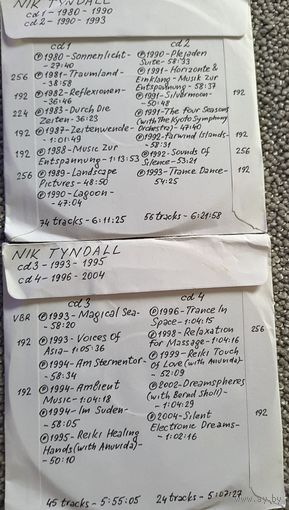 NIK TYNDALL
cd1-1980-1990
cd2-1990-1993
cd1
℗1980-Sonnenlicht-
-27:40
256 ℗1981-Traumland-
-38:58
192 ℗1982-Reflexionen-
-36:46
224 ℗1983-Durch Die
Zeiten-36:23
192 ℗1987-Zeitenwende-
-1:01:49
192 ℗1988-Music Zur
Entspannung-1:13:53
256 ℗1989-Landscape
Pictures-48:50
℗1990-Lagoon-
-47:04
74 tracks-6:11:25
cd2
℗1990-Plejaden
Suite-58:33
℗1991-Horizonte &
Einklang-Musik Zur
Entspannung-58:37 192
℗1991-Silvermoon-
-50:48
℗1991-The Four Seasons
(with The Kyoto Symphony
Orchestra)-47:40
℗1992-Farwind Islands- 192
-58:31
℗1992-Sounds Of 256
Silence-53:21
℗1993-Trance Dance- 192
54:25
56 tracks-6:21:58
NIK TYNDALL
cd3-1993-1995
cd4-1996-2004
cd3
VBR ℗1993-Magical Sea-
-58:20
192 ℗1993-Voices Of
Asia-1:05:36
℗1994-Am Sternentor-
-58:34
192 ℗1994-Ambient
Music-1:04:18
℗1994-Im Süden-
-58:05
℗1995-Reiki Healing
Hands(with Anuvida)-
-50:10
45 tracks-5:55:05
cd4
℗1996-Trance In
Space-1:04:15
℗1998-Relaxation 256
for Massage-1:04:16
℗1999-Reiki Touch
Of Love(with Anuvida)-
-52:09
℗2002-Dreamspheres
(with Bernd Sholl)-
-1:04:29
℗2004-Silent 192
Electronic Dreams-
-1:02:16
24 tracks-5:07:27